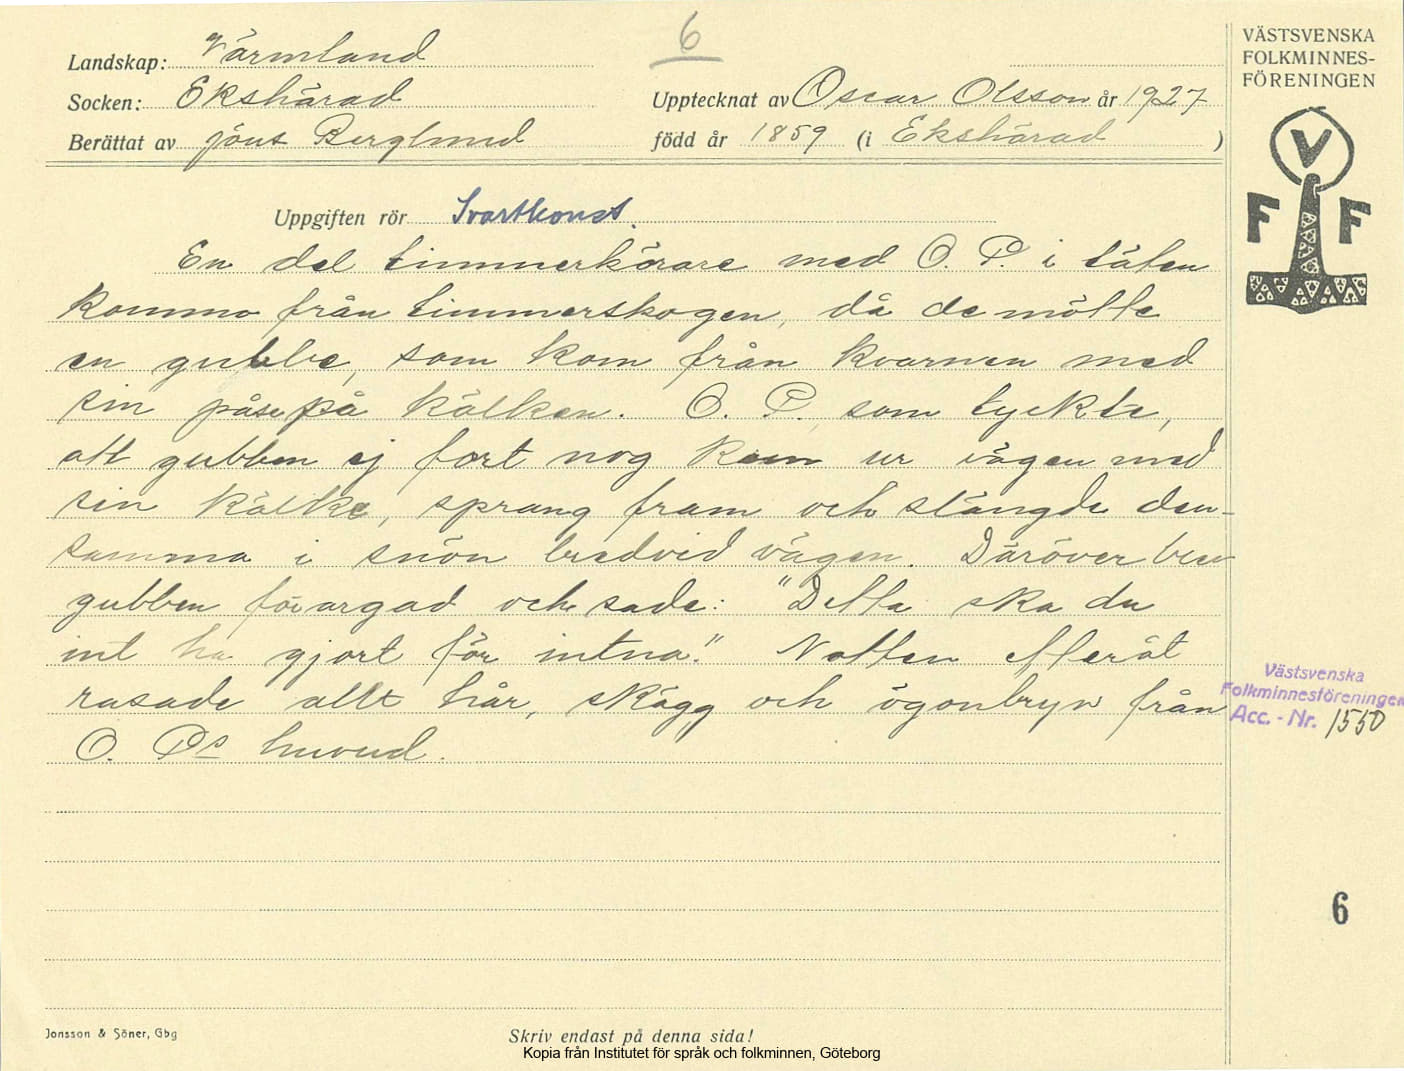 6
Landskap: Värmland
Socken: Ekshärad
Berättat av Jöns Berglund
Upptecknat av Oscar Olsson år 1927
född år 1859 (i Ekshärad )
VÄSTSVENSKA
FOLKMINNES-
FÖRENINGEN
V
F F
Uppgiften rör Svartkonst.
En del timmerkörare med O. P. i täten
kommo från timmerskogen, då de mötte
en gubbe, som kom från kvarnen med
sin påse på kälken. O. P., som tyckte,
att gubben ej fort nog kom ur vägen med
sin kälke, sprang fram och slängde den-
samma i snön bredvid vägen. Däröver blev
gubben förargad och sade: "Detta ska du
int ha gjort för intna." Natten efteråt
rasade allt hår, skägg och ögonbryn från
O. Ps huvud.
Västsvenska
Folkminnesföreningen
Acc. - Nr. 1550
6
Jonsson & Söner, Gbg
Skriv endast på denna sida!
Kopia från Institutet för språk och folkminnen, Göteborg